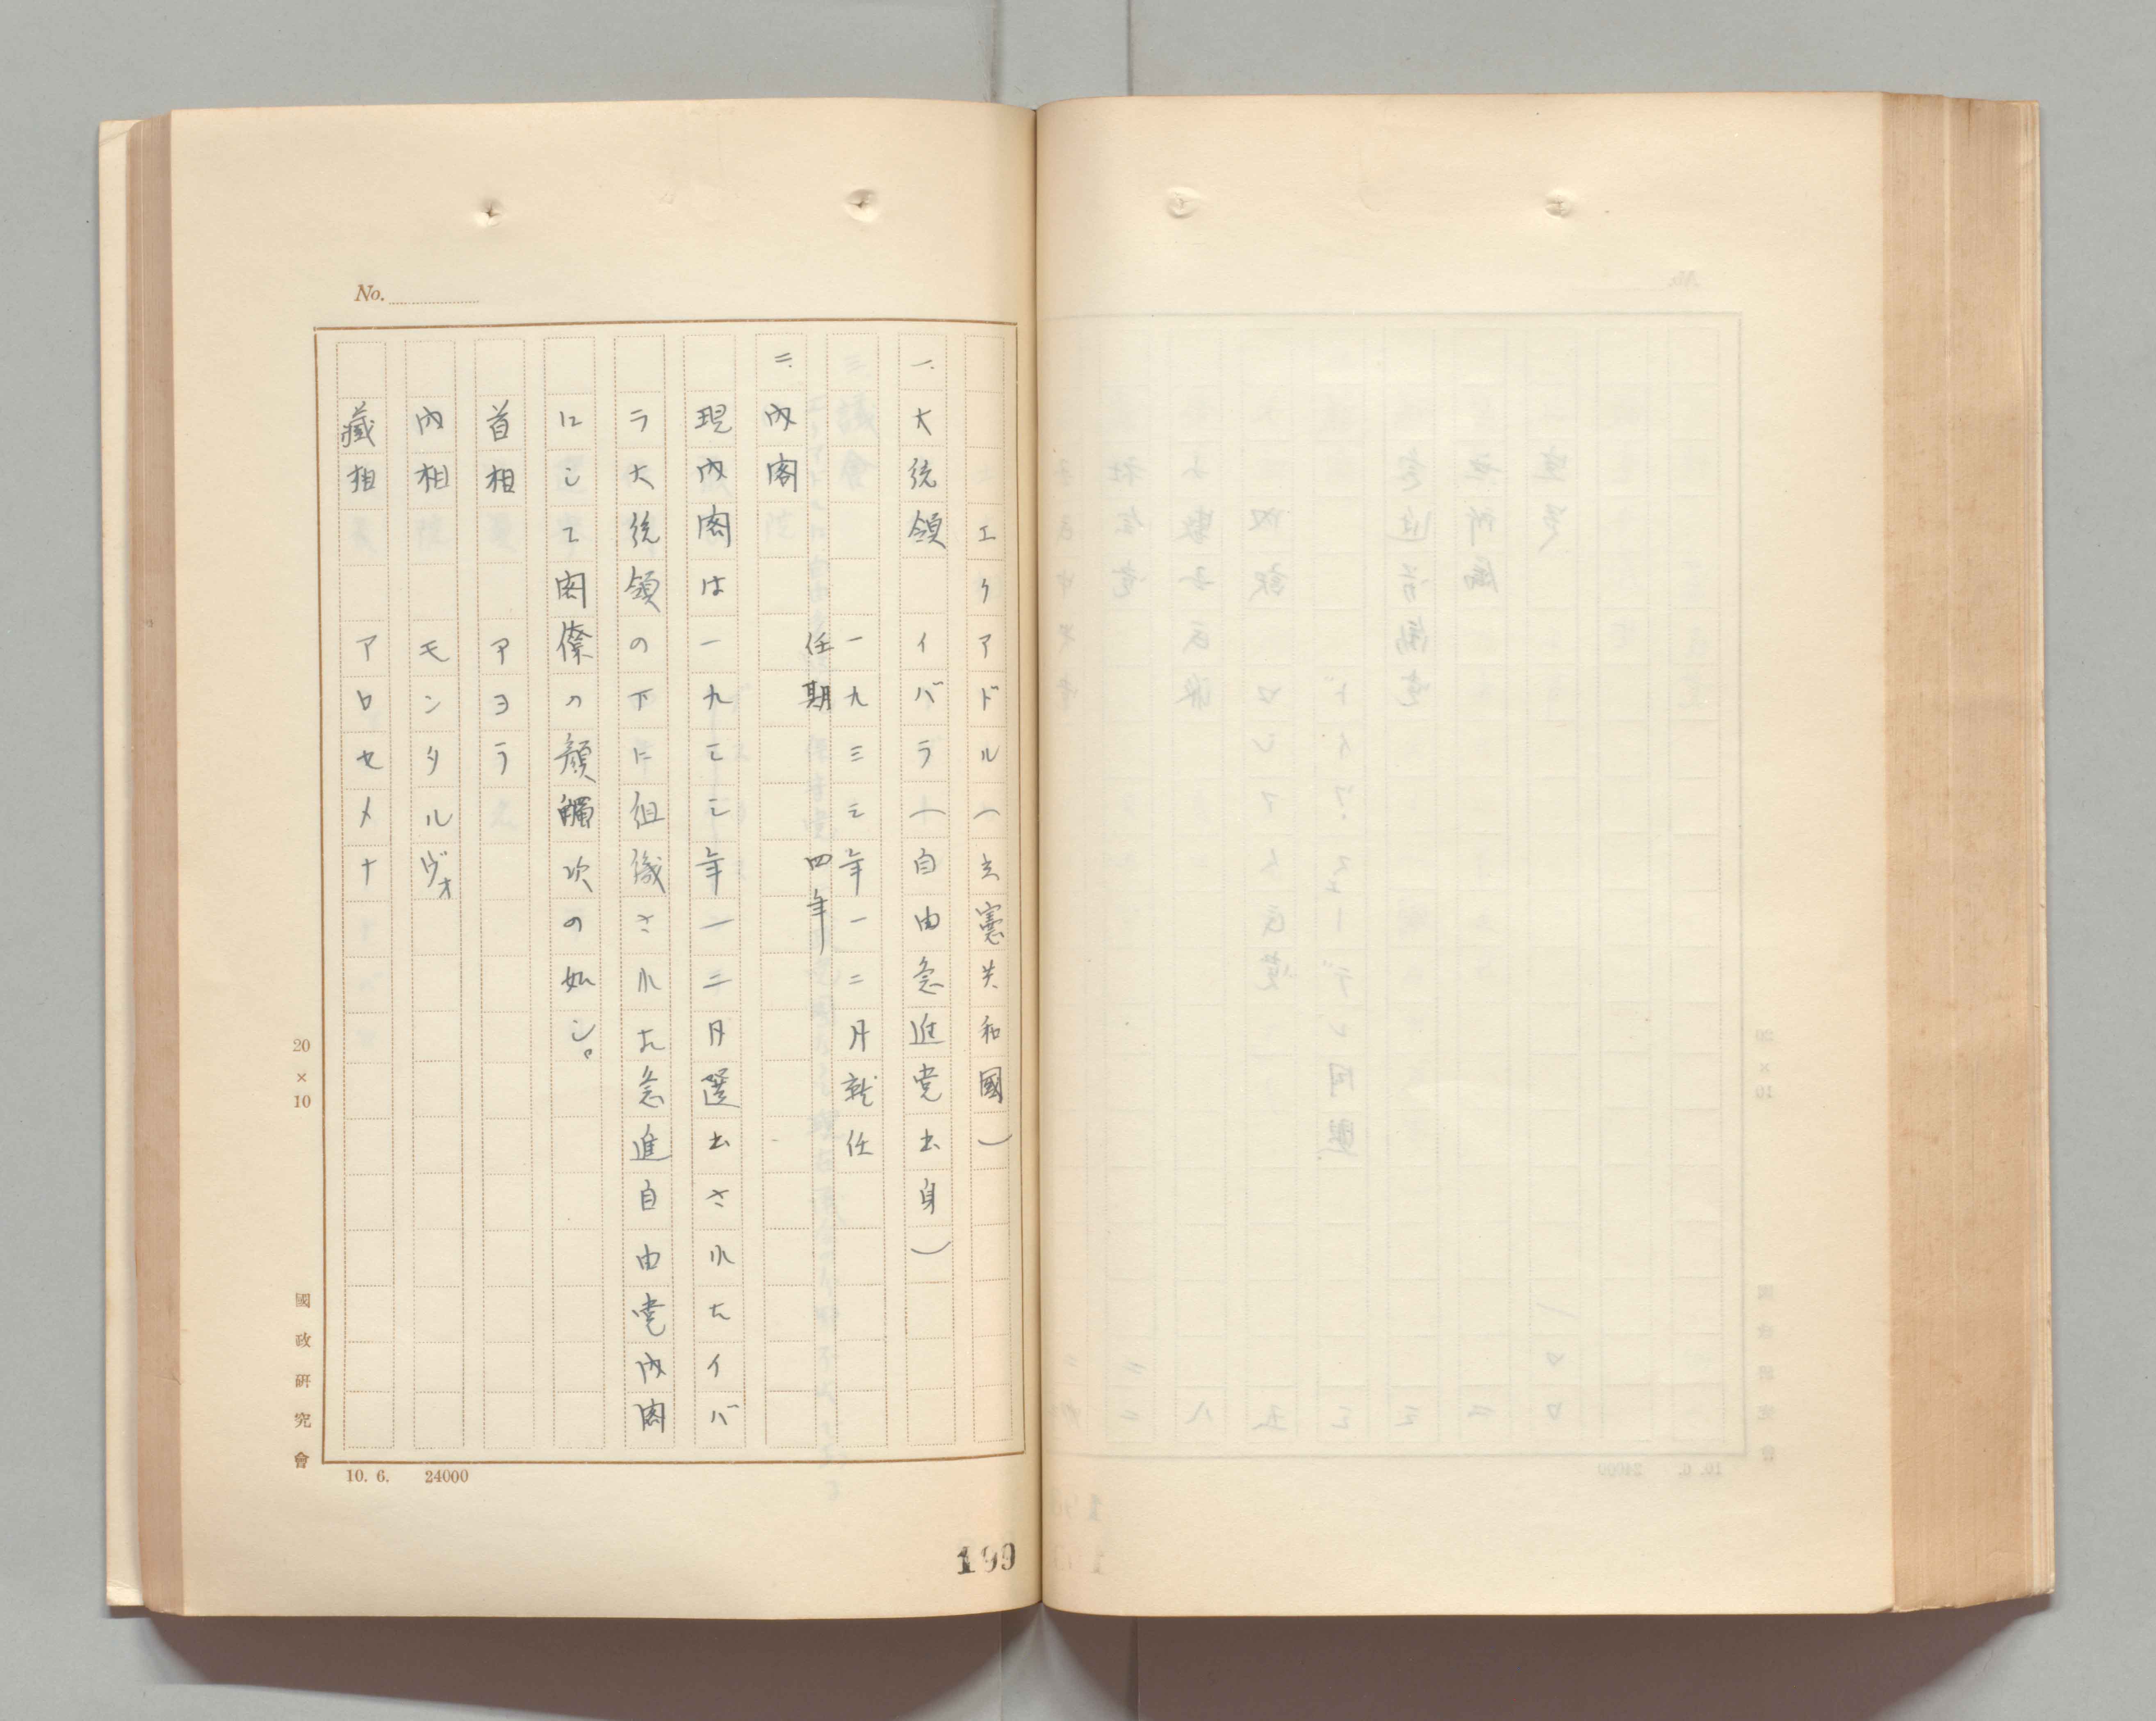 No.
エクアドル（立憲共和國）
一.大統領 イバラ（自由急進党出身）
一九三三年一二月就任
任期 四年
二.内閣
現内閣は一九三三年一二月選出されたイバ
ラ大統領の下に組織された急進自由党内閣
にして閣僚の顔觸次の如し。
首相 アヨラ
内相 モンタルヴォ
藏相 アロセメナ
20×10
國政研究會
10. 6. 24000
199